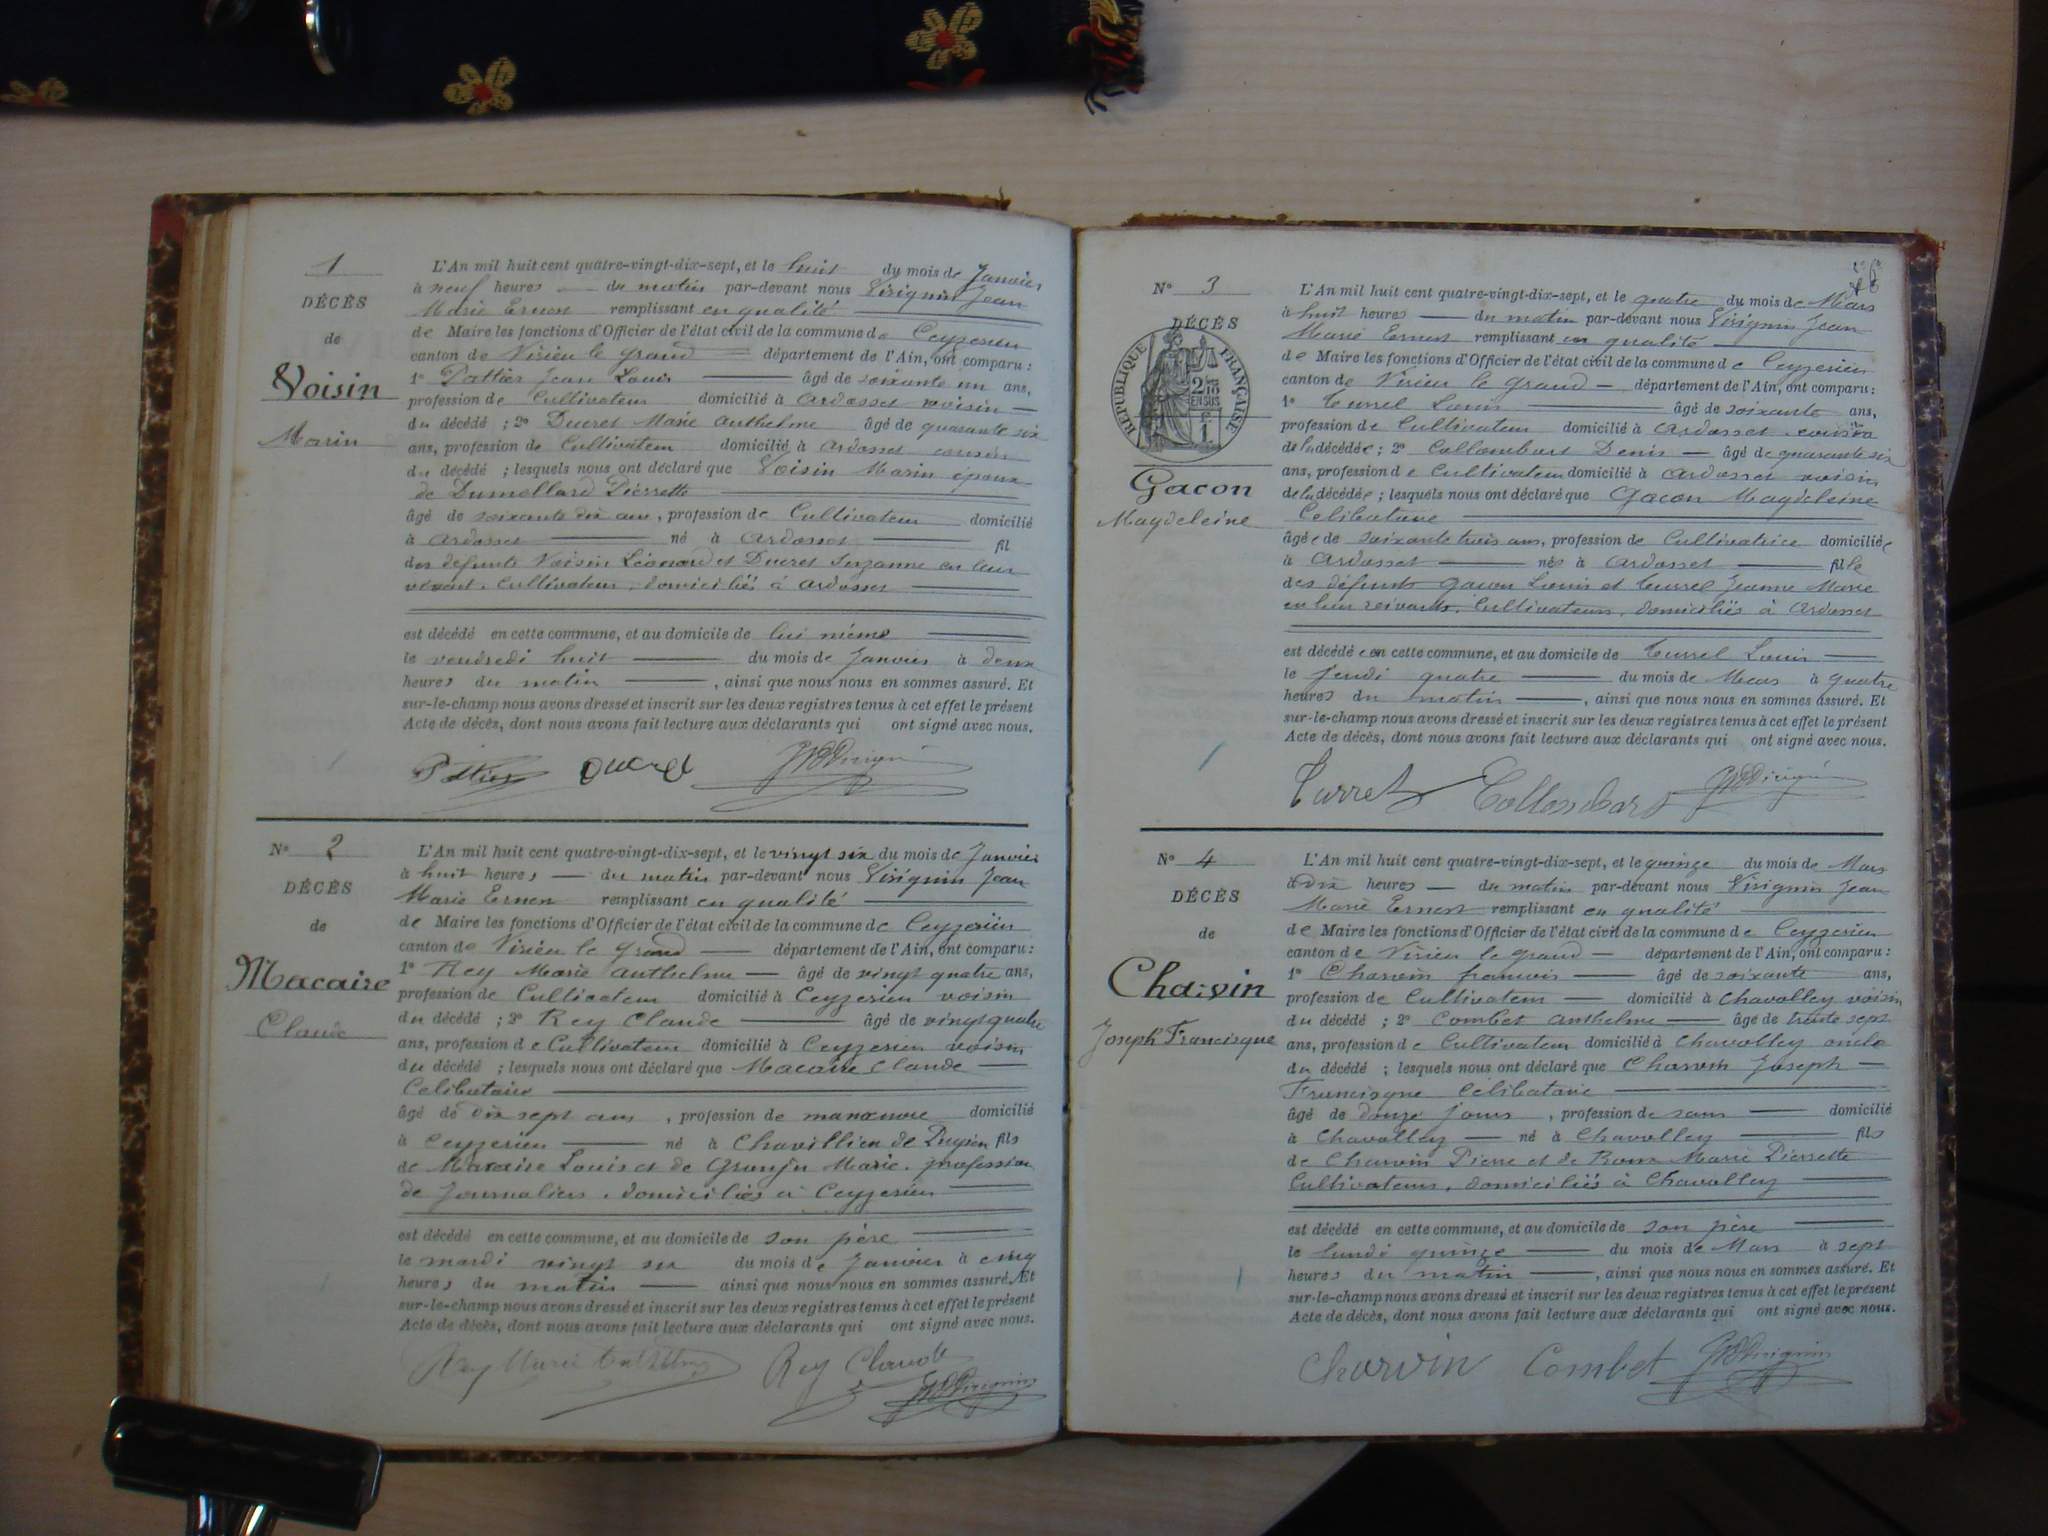 1
DÉCÈS
de
Voisin
Marin
L'An mil huit cent quatre-vingt-dix-sept, et le huit du mois de Janvier
à neuf heures du matin par-devant nous Virignin Jean
Marie Ernest remplissant en qualité
de Maire les fonctions d'Officier de l'état civil de la commune de Ceyzerieu
canton de Virieu le grand département de l'Ain, ont comparu :
1° Pattier Jean Louis âgé de soixante un ans,
profession de Cultivateur domicilié à Ardosset voisin
du décédé ; 2° Ducret Marie Anthelme âgé de quarante six
ans, profession de Cultivateur domicilié à Ardosset cousin
du décédé ; lesquels nous ont déclaré que Voisin Marin époux
de Dumollard Pierrette
âgé de soixante dix ans, profession de Cultivateur domicilié
à Ardosset né à Ardosset fil
des défunts Voisin Léonard et Ducret Suzanne en leur
vivant, cultivateurs, domiciliés à Ardosset
est décédé en cette commune, et au domicile de lui même
le vendredi huit du mois de Janvier à deux
heures du matin, ainsi que nous nous en sommes assuré. Et
sur-le-champ nous avons dressé et inscrit sur les deux registres tenus à cet effet le présent
Acte de décès, dont nous avons fait lecture aux déclarants qui ont signé avec nous.
Pattier Ducret JMEVirignin
N° 2
DÉCÈS
de
Macaire
Claude
L'An mil huit cent quatre-vingt-dix-sept, et le vingt six du mois de Janvier
à huit heures du matin par-devant nous Virignin Jean
Marie Ernest remplissant en qualité
de Maire les fonctions d'Officier de l'état civil de la commune de Ceyzerieu
canton de Virieu le Grand département de l'Ain, ont comparu :
1° Rey Marie Anthelme âgé de vingt quatre ans,
profession de Cultivateur domicilié à Ceyzerieu voisin
du décédé ; 2° Rey Claude âgé de vingt quatre
ans, profession de Cultivateur domicilié à Ceyzerieu voisin
du décédé ; lesquels nous ont déclaré que Macaire Claude
Celibataire
âgé de dix sept ans, profession de manœuvre domicilié
à Ceyzerieu né à Chavillieu de Pugieu fils
de Macaire Louis et de Marie, profession
de Journaliers, domiciliés à Ceyzerieu
est décédé en cette commune, et au domicile de son père
le mardi vingt six du mois de Janvier à cinq
heures du matin ainsi que nous nous en sommes assuré. Et
sur-le-champ nous avons dressé et inscrit sur les deux registres tenus à cet effet le présent
Acte de décès, dont nous avons fait lecture aux déclarants qui ont signé avec nous.
Rey Marie Anthelme Rey Claude JMEVirignin
N° 3
DÉCÈS
RÉPUBLIQUE FRANÇAISE
Gacon
Magdeleine
L'An mil huit cent quatre-vingt-dix-sept, et le quatre du mois de Mars
à huit heures du matin par-devant nous Virignin Jean
Marie Ernest remplissant en qualité
de Maire les fonctions d'Officier de l'état civil de la commune de Ceyzerieu
canton de Virieu le grand département de l'Ain, ont comparu :
1° Currel Louis âgé de soixante ans,
profession de Cultivateur domicilié à Ardosset cousin
de la décédée ; 2° Collombart Denis âgé de quarante six
ans, profession de Cultivateur domicilié à Ardosset voisin
de la décédée ; lesquels nous ont déclaré que Gacon Magdeleine
Celibataire
âgée de soixante trois ans, profession de Cultivatrice domiciliée
à Ardosset née à Ardosset fille
des défunts Gacon Louis et Currel Jeanne Marie
en leur vivants, Cultivateurs, domiciliés à Ardosset
est décédée en cette commune, et au domicile de Currel Louis
le jeudi quatre du mois de Mars à quatre
heures du matin, ainsi que nous nous en sommes assuré. Et
sur-le-champ nous avons dressé et inscrit sur les deux registres tenus à cet effet le présent
Acte de décès, dont nous avons fait lecture aux déclarants qui ont signé avec nous.
Collombart JMEVirignin
N° 4
DÉCÈS
de
Charvin
Joseph Francisque
L'An mil huit cent quatre-vingt-dix-sept, et le quinze du mois de Mars
à dix heures du matin par-devant nous Virignin Jean
Marie Ernest remplissant en qualité
de Maire les fonctions d'Officier de l'état civil de la commune de Ceyzerieu
canton de Virieu le grand département de l'Ain, ont comparu :
1° Charvin francois âgé de soixante ans,
profession de Cultivateur domicilié à Chavolley voisin
du décédé ; 2° Combet Anthelme âgé de trente sept
ans, profession de Cultivateur domicilié à Chavolley oncle
du décédé ; lesquels nous ont déclaré que Charvin Joseph
Francisque Celibataire
âgé de douze jours, profession de sans domicilié
à Chavolley né à Chavolley fils
de Charvin Pierre et de Roux Marie Pierrette
Cultivateurs, domiciliés à Chavolley
est décédé en cette commune, et au domicile de son père
le lundi quinze du mois de Mars à sept
heures du matin, ainsi que nous nous en sommes assuré. Et
sur-le-champ nous avons dressé et inscrit sur les deux registres tenus à cet effet le présent
Acte de décès, dont nous avons fait lecture aux déclarants qui ont signé avec nous.
Charvin Combet JMEVirignin